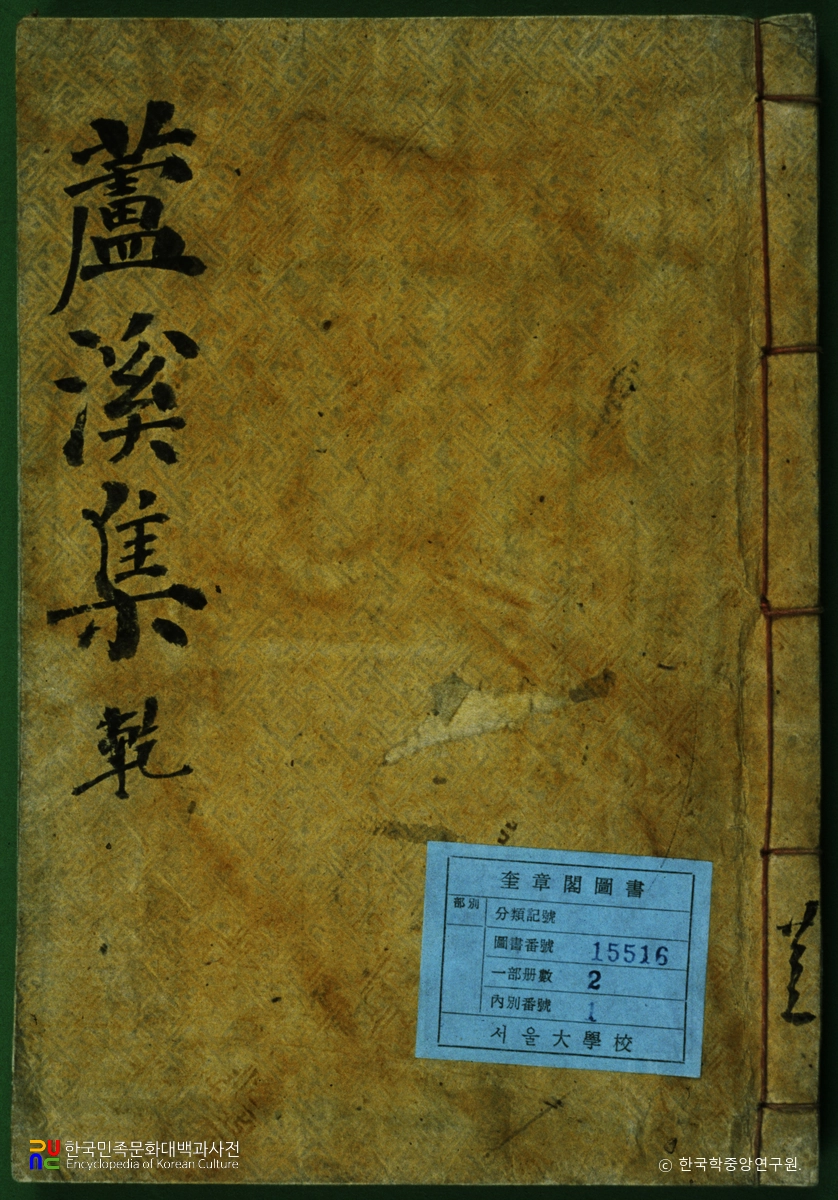 蘆溪集 乾
奎章閣圖書
部別
分類記號
圖書番號 15516
一部册數 2
內別番號 1
서울大學校
한국민족문화대백과사전
Encyclopedia of Korean Culture
ⓒ 한국학중앙연구원.